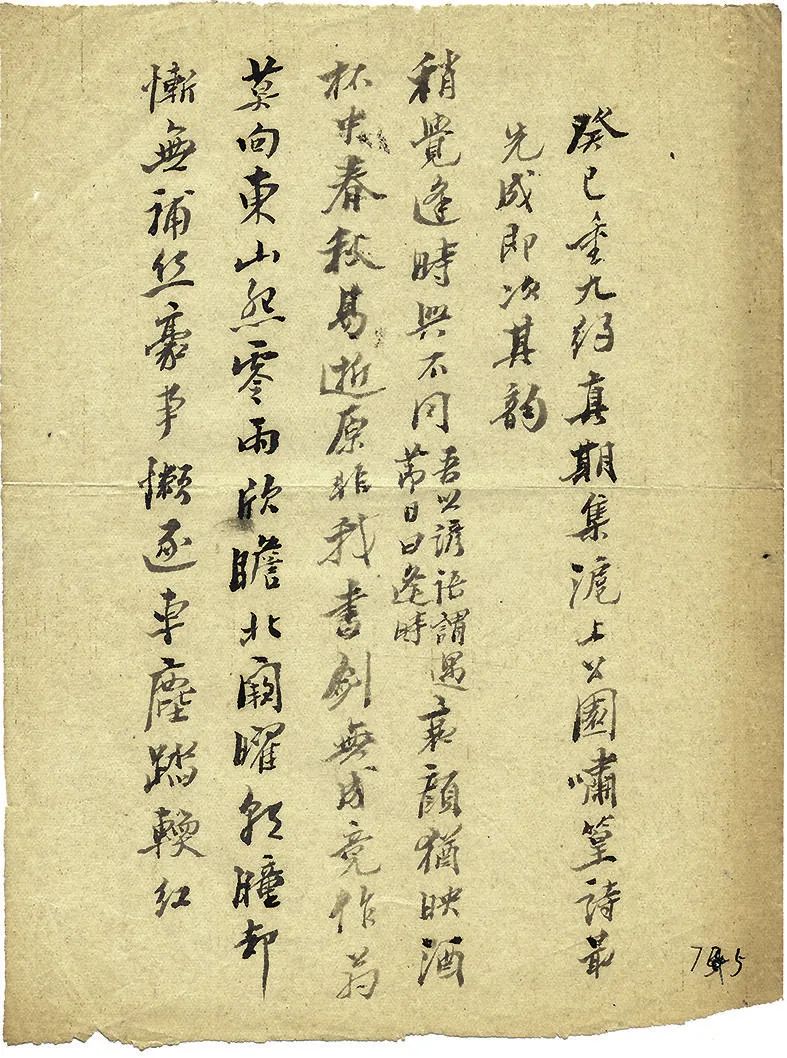 癸巳重九約真期集滬上公園嘯篁詩最
先成即次其韵
稍覺逢時興不同
吾諺語謂遇
節日曰逢時
衰顏猶映酒
杯中春秋易逝原非我書劍無成竟作翁
莫向東山怨零雨欣瞻北闕曜朝曈却
慚無補絲豪事懶逐車塵踏輭紅